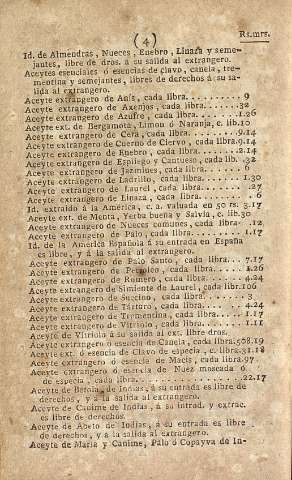 (4) Rs.mrs.
Id. de Almendras, Nueces, Enebro, Linaza y seme-
jantes, libre de dros. á su salida al extrangero.
Aceytes esenciales ó esencias de clavo, canela, tre-
mentina y semejantes, libres de derechos á su sa-
lida al extrangero.
Aceyte extrangero de Anís, cada libra........ 9
Aceyte extrangero de Axenjos, cada libra...... 32
Aceyte extrangero de Azufre, cada libra...... 1.26
Aceyte ext. de Bergamota, Limon ó Naranja, c. lib. 10
Aceyte extrangero de Cera, cada libra....... 9.14
Aceyte extrangero de Cuerno de Ciervo, cada libra. 9.14
Aceyte extrangero de Enebro, cada libra...... 2.14
Aceyte extrangero de Espliego y Cantueso, cada lib. .32
Aceyte extrangero de Jazmines, cada libra..... 6
Aceyte extrangero de Ladrillo, cada libra..... 1.30
Aceyte extrangero de Laurel, cada libra....... .27
Aceyte extrangero de Linaza, cada libra...... 6
Id. extraido á la América, c. a. valuada en 50 rs. 3.17
Aceyte ext. de Menta, Yerba buena y Salvia, c. lib. 30
Aceyte extrangero de Nueces comunes, cada libra. .12
Aceyte extrangero de Palo, cada libra........ 1.17
Id. de la América Española á su entrada en España
es libre, y á la salida al extrangero.
Aceyte extrangero de Palo Santo, cada libra... 7.17
Aceyte extrangero de Petroleo, cada libra..... 1.26
Aceyte extrangero de Romero, cada libra...... 4.24
Aceyte extrangero de Simiente de Laurel, cada lib. 106
Aceyte extrangero de Succino, cada libra..... 3
Aceyte extrangero de Tártaro, cada libra...... 4.24
Aceyte extrangero de Trementina, cada libra... 1.17
Aceyte extrangero de Vitriolo, cada libra..... 1.11
Aceyte de Vitriolo á su salida al ext. libre dros.
Aceyte extrangero ó esencia de Canela, cada libra. 508.19
Aceyte ext. ó esencia de Clavo de especia, c. libra. 31.18
Aceyte extrangero ó esencia de Macis, cada libra. 97
Aceyte extrangero ó esencia de Nuez moscada ó
de especia, cada libra............ 22.17
Aceyte de de Indias, á su entrada es libre de
derechos, y á la salida al extrangero.
Aceyte de Canime de Indias, á su introd. y extrac.
es libre de derechos.
Aceyte de Abeto de Indias, á su entrada es libre
de derechos, y á la salida al extrangero.
Aceyte de María y Canime, Palo ó Copayva de In-